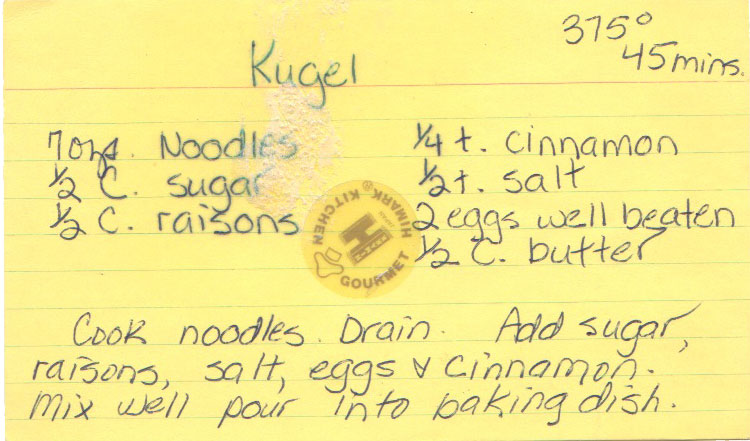 375°
45 mins.
Kugel
7 ozs. Noodles
½ C. sugar
½ C. raisons
¼ t. cinnamon
½ t. salt
2 eggs well beaten
½ C. butter
HIMARK® KITCHEN
GOURMET
Cook noodles. Drain. Add sugar,
raisons, salt, eggs & cinnamon.
Mix well pour into baking dish.